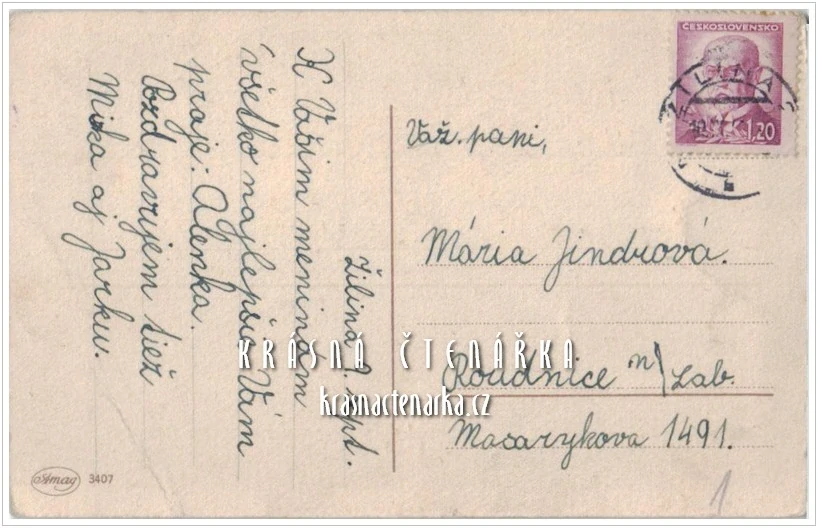 ČESKOSLOVENSKO
1,20
ŽILINA
Žilina 9. sept.
K Vašim meninám
všetko najlepšie Vám
praje: Alenka.
Pozdravujem tiež
Miša aj Jarku.
Váž. pani,
Mária Jindrová.
Roudnice n/Lab.
Masarykova 1491.
KRÁSNÁ ČTENÁŘKA
krasnactenarka.cz
Amag 3407
1